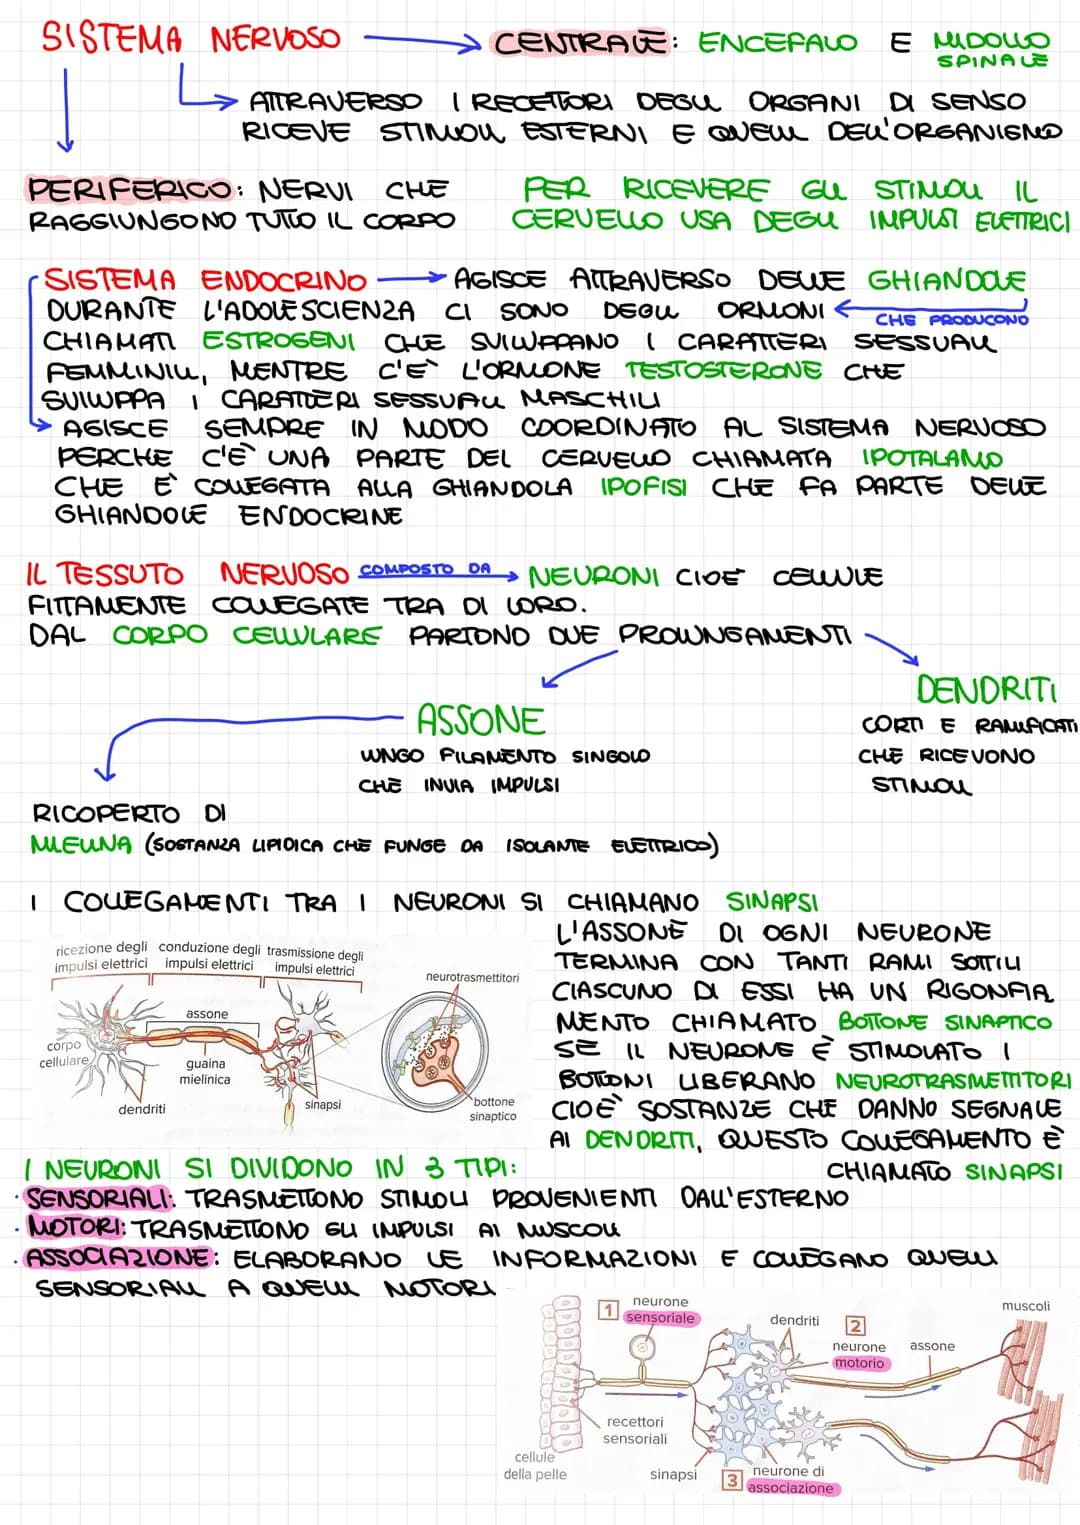 SISTEMA NERVOSO → CENTRALE: ENCEFALO E MIDOLLO SPINALE
ATTRAVERSO I RECETTORI DEGLI ORGANI DI SENSO
RICEVE STIMOLI ESTERNI E QUELLI DELL'ORGANISMO
PERIFERICO: NERVI CHE
RAGGIUNGONO TUTTO IL CORPO
PER RICEVERE GLI STIMOLI IL
CERVELLO USA DEGLI IMPULSI ELETTRICI
SISTEMA ENDOCRINO → AGISCE ATTRAVERSO DELLE GHIANDOLE
CHE PRODUCONO
DURANTE L'ADOLESCIENZA CI SONO DEGLI ORMONI
CHIAMATI ESTROGENI CHE SVILUPPANO I CARATTERI SESSUALI
FEMMINILI, MENTRE C'È L'ORMONE TESTOSTERONE CHE
SVILUPPA I CARATTERI SESSUALI MASCHILI
AGISCE SEMPRE IN MODO COORDINATO AL SISTEMA NERVOSO
PERCHE C'È UNA PARTE DEL CERVELLO CHIAMATA IPOTALAMO
CHE È COLLEGATA ALLA GHIANDOLA IPOFISI CHE FA PARTE DELLE
GHIANDOLE ENDOCRINE
IL TESSUTO NERVOSO COMPOSTO DA → NEURONI CIOE' CELLULE
FITTAMENTE COLLEGATE TRA DI LORO.
DAL CORPO CELLULARE PARTONO DUE PROLUNGAMENTI
ASSONE
LUNGO FILAMENTO SINGOLO
CHE INVIA IMPULSI
DENDRITI
CORTI E RAMIFICATI
CHE RICEVONO
STIMOLI
RICOPERTO DI
MIELINA (SOSTANZA LIPIDICA CHE FUNGE DA ISOLANTE ELETTRICO)
I COLLEGAMENTI TRA I NEURONI SI CHIAMANO SINAPSI
L'ASSONE DI OGNI NEURONE
TERMINA CON TANTI RAMI SOTTILI
CIASCUNO DI ESSI HA UN RIGONFIA
MENTO CHIAMATO BOTTONE SINAPTICO
SE IL NEURONE È STIMOLATO I
BOTTONI LIBERANO NEUROTRASMETTITORI
CIOÈ SOSTANZE CHE DANNO SEGNALE
AI DENDRITI, QUESTO COLLEGAMENTO È
CHIAMATO SINAPSI
ricezione degli impulsi elettrici
conduzione degli impulsi elettrici
trasmissione degli impulsi elettrici
neurotrasmettitori
assone
corpo
cellulare
guaina
mielinica
dendriti
sinapsi
bottone
sinaptico
I NEURONI SI DIVIDONO IN 3 TIPI:
· SENSORIALI: TRASMETTONO STIMOLI PROVENIENTI DALL'ESTERNO
· MOTORI: TRASMETTONO GLI IMPULSI AI MUSCOLI
· ASSOCIAZIONE: ELABORANO LE INFORMAZIONI E COLLEGANO QUELLI
SENSORIALI A QUELLI MOTORI
1 neurone
sensoriale
dendriti
2
neurone
motorio
assone
muscoli
recettori
sensoriali
cellule
della pelle
sinapsi
3 neurone di
associazione